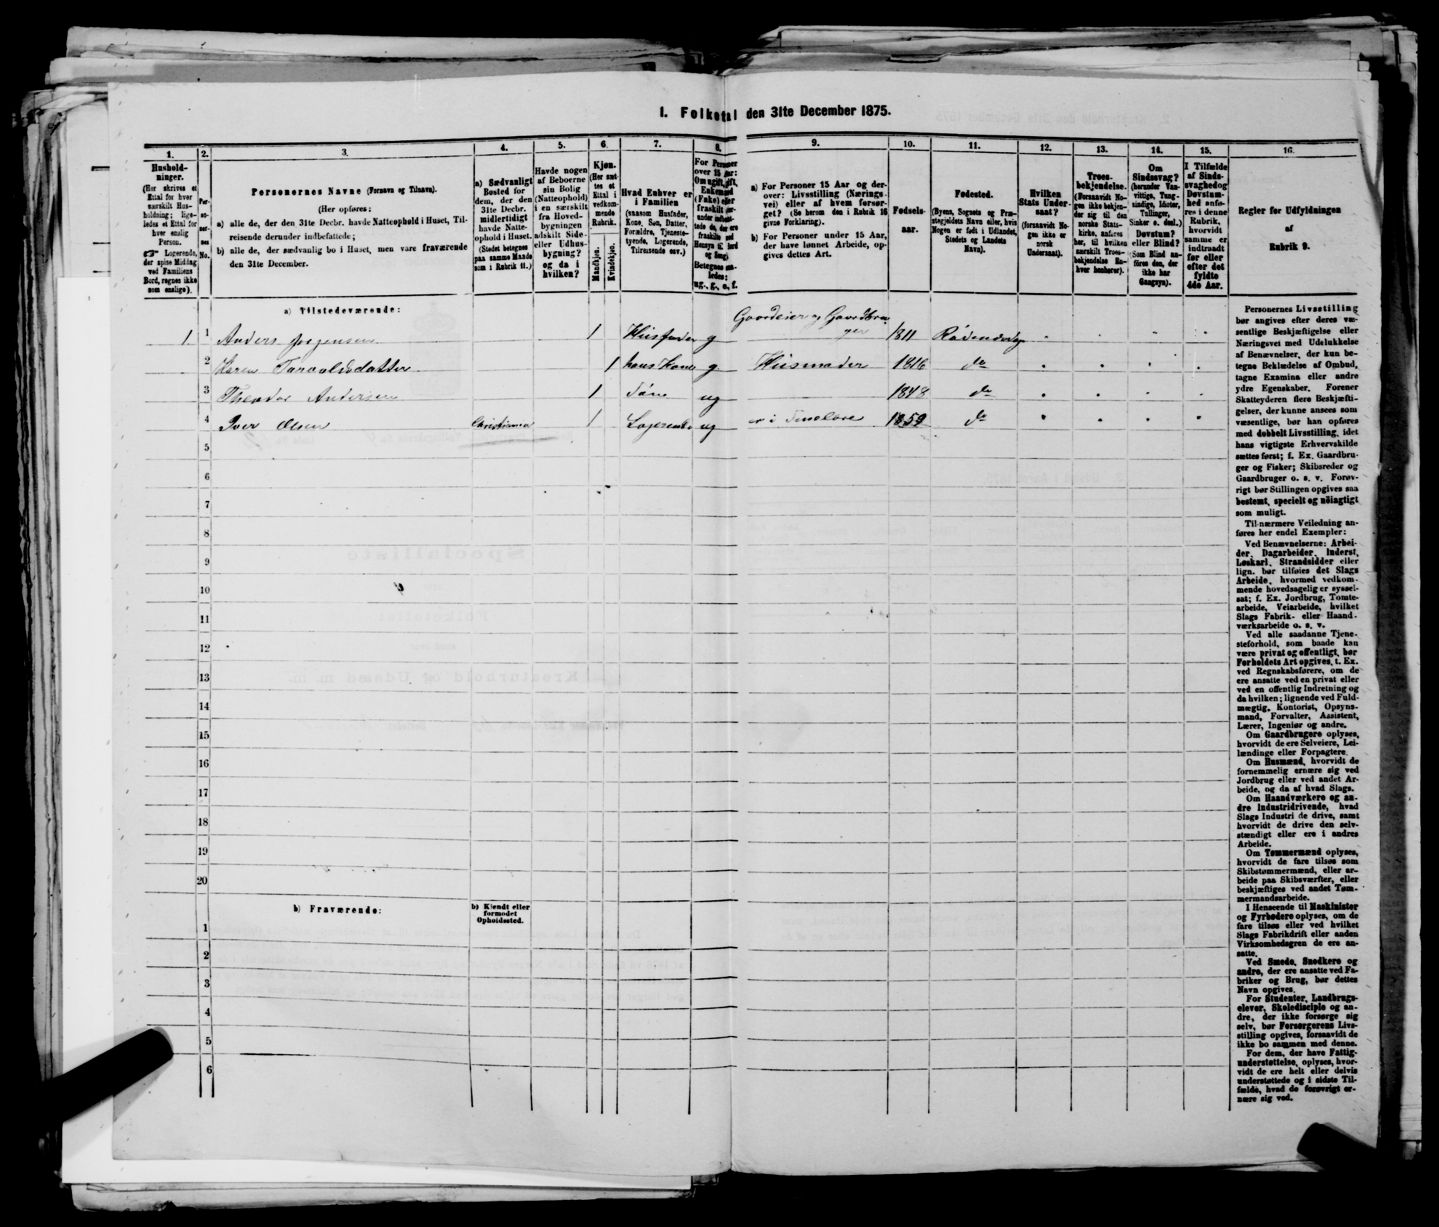 1. Folketal den 31te December 1875.
1. 2. 3. 4. 5. 6. 7. 8. 9. 10. 11. 12. 13. 14. 15. 16.
Husholdninger.
(Her skrives et
Ettal for hver
særskilt Husholdning;
Egeledes et Ettal for
hver enslig
Person.
☞ Logerende,
der spise Middag
ved Familiens
Bord, regnes ikke
som enslige).
Personernes No.
Personernes Navne (Fornavn og Tilnavn).
(Her opføres:
a) alle de, der den 31te Decbr. havde Natteophold i Huset, Tilreisende
derunder indbefattede;
b) alle de, der sædvanlig bo i Huset, men vare fraværende
den 31te December.
a) Sædvanligt
Bosted for
dem, der den
31te Decbr.
midlertidigt
havde Natteophold
i Huset.
(Stedet betegnes
paa samme Maade
som i Rubrik 11.)
Havde nogen
af Beboerne
sin Bolig
(Natteophold)
i en særskilt
fra Hovedbygningen
adskilt Side-
eller Udhusbygning?
og da i
hvilken?
Kjøn.
(Her sættes
et Ettal i
vedkommende
Rubrik.
Mandkjøn.
Kvindekjøn.
Hvad Enhver er
i Familien
(saasom Husfader,
Kone, Søn, Datter,
Forældre, Tjenestetyende,
Logerende,
Tilreisende osv.)
For Personer
over 15 Aar:
Om ugift, gift,
Enkemand
(Enke) eller
fraskilt
Betegnes saaledes:
ug., g., e., f.
a) For Personer 15 Aar og derover:
Livsstilling (Næringsvei)
eller af hvem forsørget?
(Se herom den i Rubrik 16
givne Forklaring).
b) For Personer under 15 Aar,
der have lønnet Arbeide, opgives
dettes Art.
Fødselsaar.
Fødested.
(Byens, Sognets og Præstegjeldets
Navn eller, hvis
Nogen er født i Udlandet,
Stedets og Landets
Navn).
Hvilken
Stats Undersaat?
(forsaavidt Nogen
ikke er
norsk
Undersaat).
Troesbekjendelse.
(Forsaavidt Nogen
ikke bekjender
sig til den
norske Statskirke,
anføres
her, til hvilken
særskilt Troesbekjendelse
Enhver
henhører).
Om
Sindssvag?
(herunder Vanvittige,
Tungsindige,
Idioter,
Tullinger,
Sinker o. desl.)
Døvstum?
eller Blind?
(Som Blind anføres
den, der
ikke har
Gangsyn).
I Tilfælde
af Sindssvaghed
og
Døvstumhed
anføres
i denne
Rubrik,
hvorvidt
samme er
indtraadt
før eller
efter det
fyldte
4de Aar.
Regler for Udfyldningen
af
Rubrik 9.
a) Tilstedeværende:
1 1 Anders Jørgensen 1 Husfader g Gaardeier og Gaardbruger 1811 Rødenes
2 Karen Taraldsdatter 1 hans Kone g Husmoder 1816 do
3 Theodor Andersen 1 Søn ug 1848 do
4 Iver Olsen Christiania 1 Logerende ug 1859 do
5
6
7
8
9
10
11
12
13
14
15
16
17
18
19
20
b) Fraværende:
b) Kjendt eller
formodet
Opholdssted.
1
2
3
4
5
6
Personernes Livsstilling
bør angives efter deres væsentlige
Beskjæftigelse eller
Næringsvei med Udelukkelse
af Benævnelser, der kun betegne
Beklædelse af Ombud,
tagne Examina eller andre
ydre Egenskaber. Forener
Skatteyderen flere Beskjæftigelser,
der kunne ansees som
væsentlige, bør han opføres
med dobbelt Livsstilling, idet
hans vigtigste Erhvervskilde
sættes først; f. Ex. Gaardbruger
og Fisker; Skibsreder og
Gaardbruger o. s. v. Forøvrigt
bør Stillingen opgives saa
bestemt, specielt og nøiagtigt
som muligt.
Til nærmere Veiledning anføres
her endel Exempler:
Ved Benævnelserne: Arbeider,
Dagarbeider, Inderst,
Løskarl, Strandsidder eller
lign. bør tilføies det Slags
Arbeide, hvormed vedkommende
hovedsagelig er sysselsat;
f. Ex. Jordbrug, Tomtearbeide,
Veiarbeide, hvilket
Slags Fabrik- eller Haandværksarbeide
o. s. v.
Ved alle saadanne Tjenesteforhold,
som baade kan
være privat og offentligt, bør
Forholdets Art opgives, t. Ex.
ved Regnskabsførere, om de
ere ansatte ved en privat eller
ved en offentlig Indretning og
da hvilken; lignende ved Fuldmægtig,
Kontorist, Opsynsmand,
Forvalter, Assistent,
Lærer, Ingeniør og andre.
Om Gaardbrugere oplyses,
hvorvidt de ere Selveiere, Leilændinge
eller Forpagtere.
Om Husmænd, hvorvidt de
fornemmelig ernære sig ved
Jordbrug eller ved andet Arbeide,
og da af hvad Slags.
Om Haandværkere og andre
Industridrivende, hvad
Slags Industri de drive, samt
hvorvidt de drive den selvstændigt
eller ere i andres
Arbeide.
Om Tømmermænd oplyses,
hvorvidt de fare tilsøs som
Skibstømmermænd, eller arbeide
paa Skibsværfter, eller
beskjæftiges ved andet Tømmermandsarbeide.
I Henseende til Maskinister
og Fyrbødere oplyses, om de
fare tilsøs eller ved hvilket
Slags Fabrikdrift eller anden
Virksomhedsgren de ere ansatte.
Ved Smede, Snedkere og
andre, der ere ansatte ved Fabriker
og Brug, bør dettes
Navn opgives.
For Studenter, Landbrugselever,
Skoledisciple og andre,
der ikke forsørge sig
selv, bør Forsørgerens Livsstilling
opgives, forsaavidt de
ikke bo sammen med denne.
For dem, der have Fattigunderstøttelse,
oplyses, hvorvidt
de ere helt eller delvis
understøttede og i sidste Tilfælde,
hvad de forøvrigt ernære
sig ved.